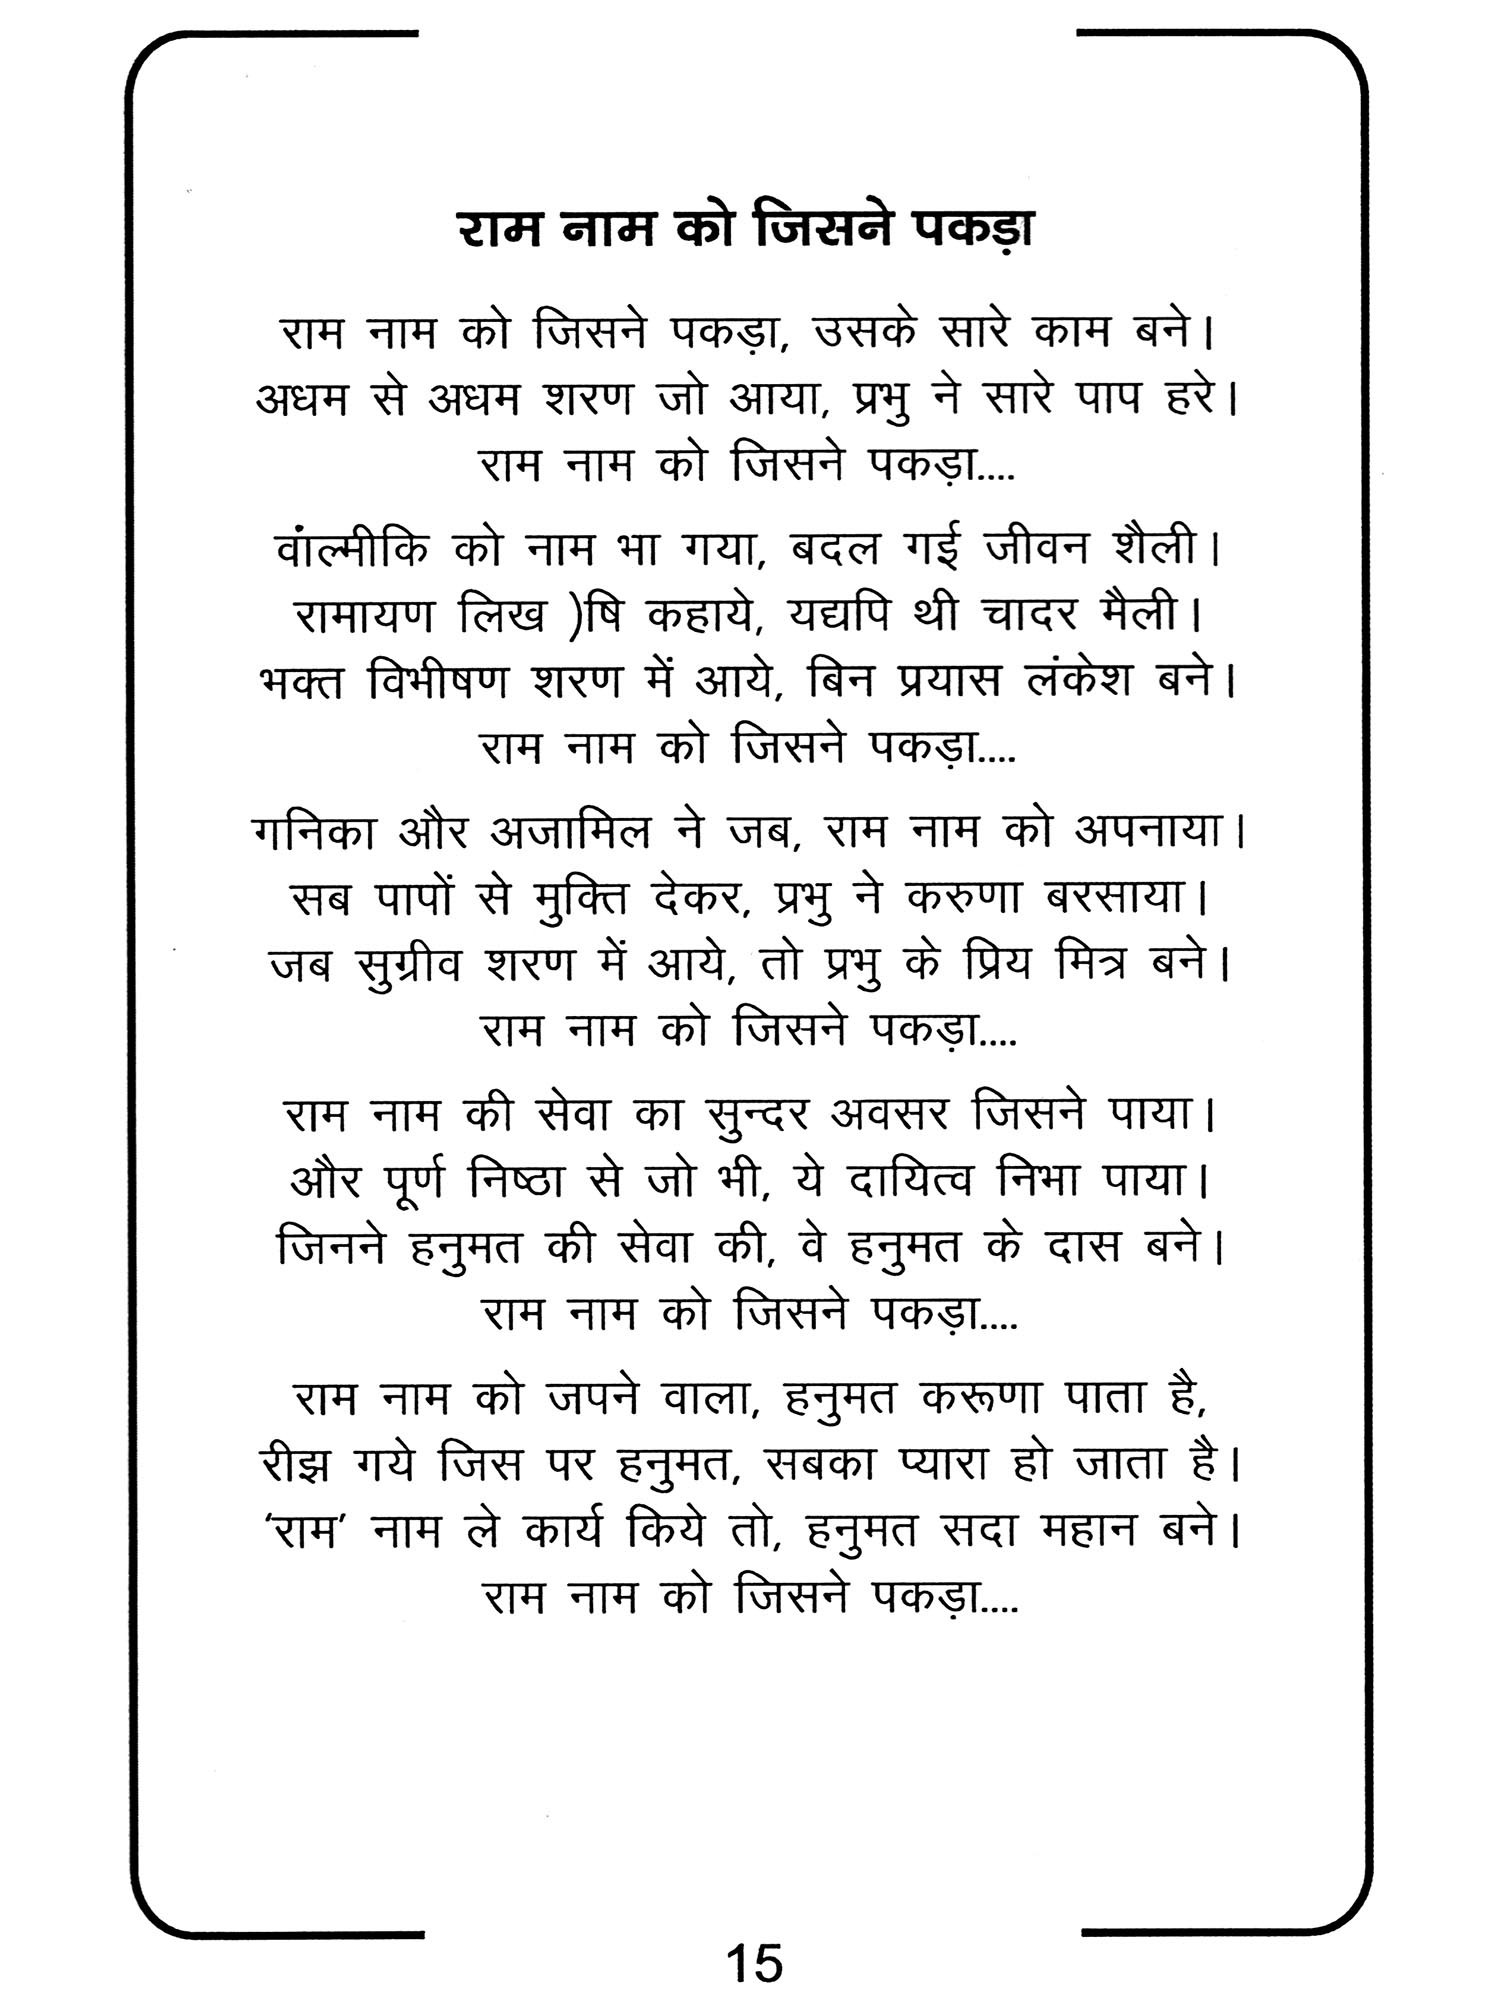 राम नाम को जिसने पकड़ा
राम नाम को जिसने पकड़ा, उसके सारे काम बने।
अधम से अधम शरण जो आया, प्रभु ने सारे पाप हरे।
राम नाम को जिसने पकड़ा....
वांल्मीकि को नाम भा गया, बदल गई जीवन शैली।
रामायण लिख )षि कहाये, यद्यपि थी चादर मैली।
भक्त विभीषण शरण में आये, बिन प्रयास लंकेश बने।
राम नाम को जिसने पकड़ा....
गनिका और अजामिल ने जब, राम नाम को अपनाया।
सब पापों से मुक्ति देकर, प्रभु ने करुणा बरसाया।
जब सुग्रीव शरण में आये, तो प्रभु के प्रिय मित्र बने।
राम नाम को जिसने पकड़ा....
राम नाम की सेवा का सुन्दर अवसर जिसने पाया।
और पूर्ण निष्ठा से जो भी, ये दायित्व निभा पाया।
जिनने हनुमत की सेवा की, वे हनुमत के दास बने।
राम नाम को जिसने पकड़ा....
राम नाम को जपने वाला, हनुमत करूणा पाता है,
रीझ गये जिस पर हनुमत, सबका प्यारा हो जाता है।
'राम' नाम ले कार्य किये तो, हनुमत सदा महान बने।
राम नाम को जिसने पकड़ा....
15